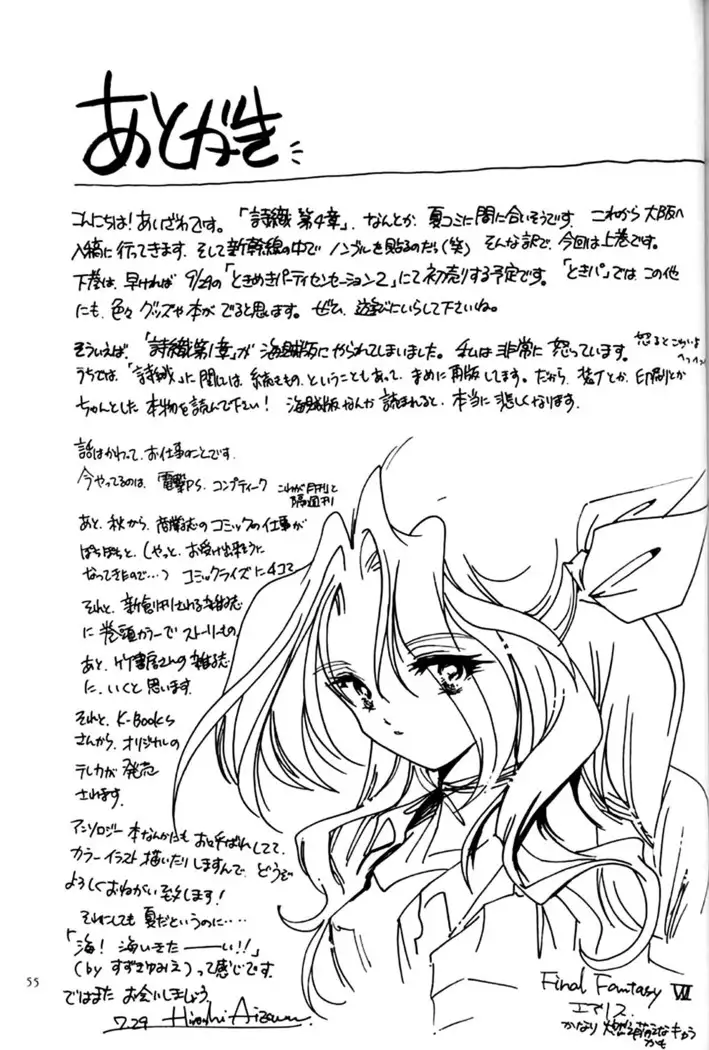 あとがき
こんにちは!あいざわです。「詩織 第4章」、なんとか 夏コミに間に合いそうです。これから大阪へ
入稿に行ってきます。そして新幹線の中でノンブルを貼るのだ(笑) そんな訳で、今回は上巻です。
下巻は、早ければ 9/29の「ときめきパーティセンセーション2」にて初売りする予定です。「ときパ」では、この他
にも、色々グッズや本がでると思います。ぜひ、遊びにいらして下さいね。
そういえば、「詩織第1章」が海賊版にやられてしまいました。私は非常に怒っています。
怒るとこわいよ
うちでは、「詩織」に関しては、続きもの、ということもあって、まめに再版してます。だから、装丁とか、印刷とか
ちゃんとした本物を読んで下さい! 海賊版なんか読まれると、本当に悲しくなります。
話はかわって、お仕事のことです。
今やってるのは、電撃PS、コンプティーク
これが月刊と
隔週刊
あと、秋から、商業誌のコミックの仕事が
ぽちぽちと、(やっと、お受け出来るように
なってきたので…) コミックライズに4コマ
それと、新創刊される雑誌
に巻頭カラーでストーリーもの。
あと、竹書房さんの雑誌
に、いくと思います。
それと、K-Books
さんから、オリジナルの
テレカが発売
されます。
アンソロジー本なんかにもお呼ばれしてて、
カラーイラスト描いたりしますんで、どうぞ
よろしくおねがい致します!
それにしても夏だというのに‥‥
「海!海いきたーーい!!」
(by すずきゆみえ)って感じです。
ではまた お会いしましょう。
7.29 Hiroshi Aizawa.
Final Fantasy VII
エアリス
かなり 萌えなキャラ
かも
55